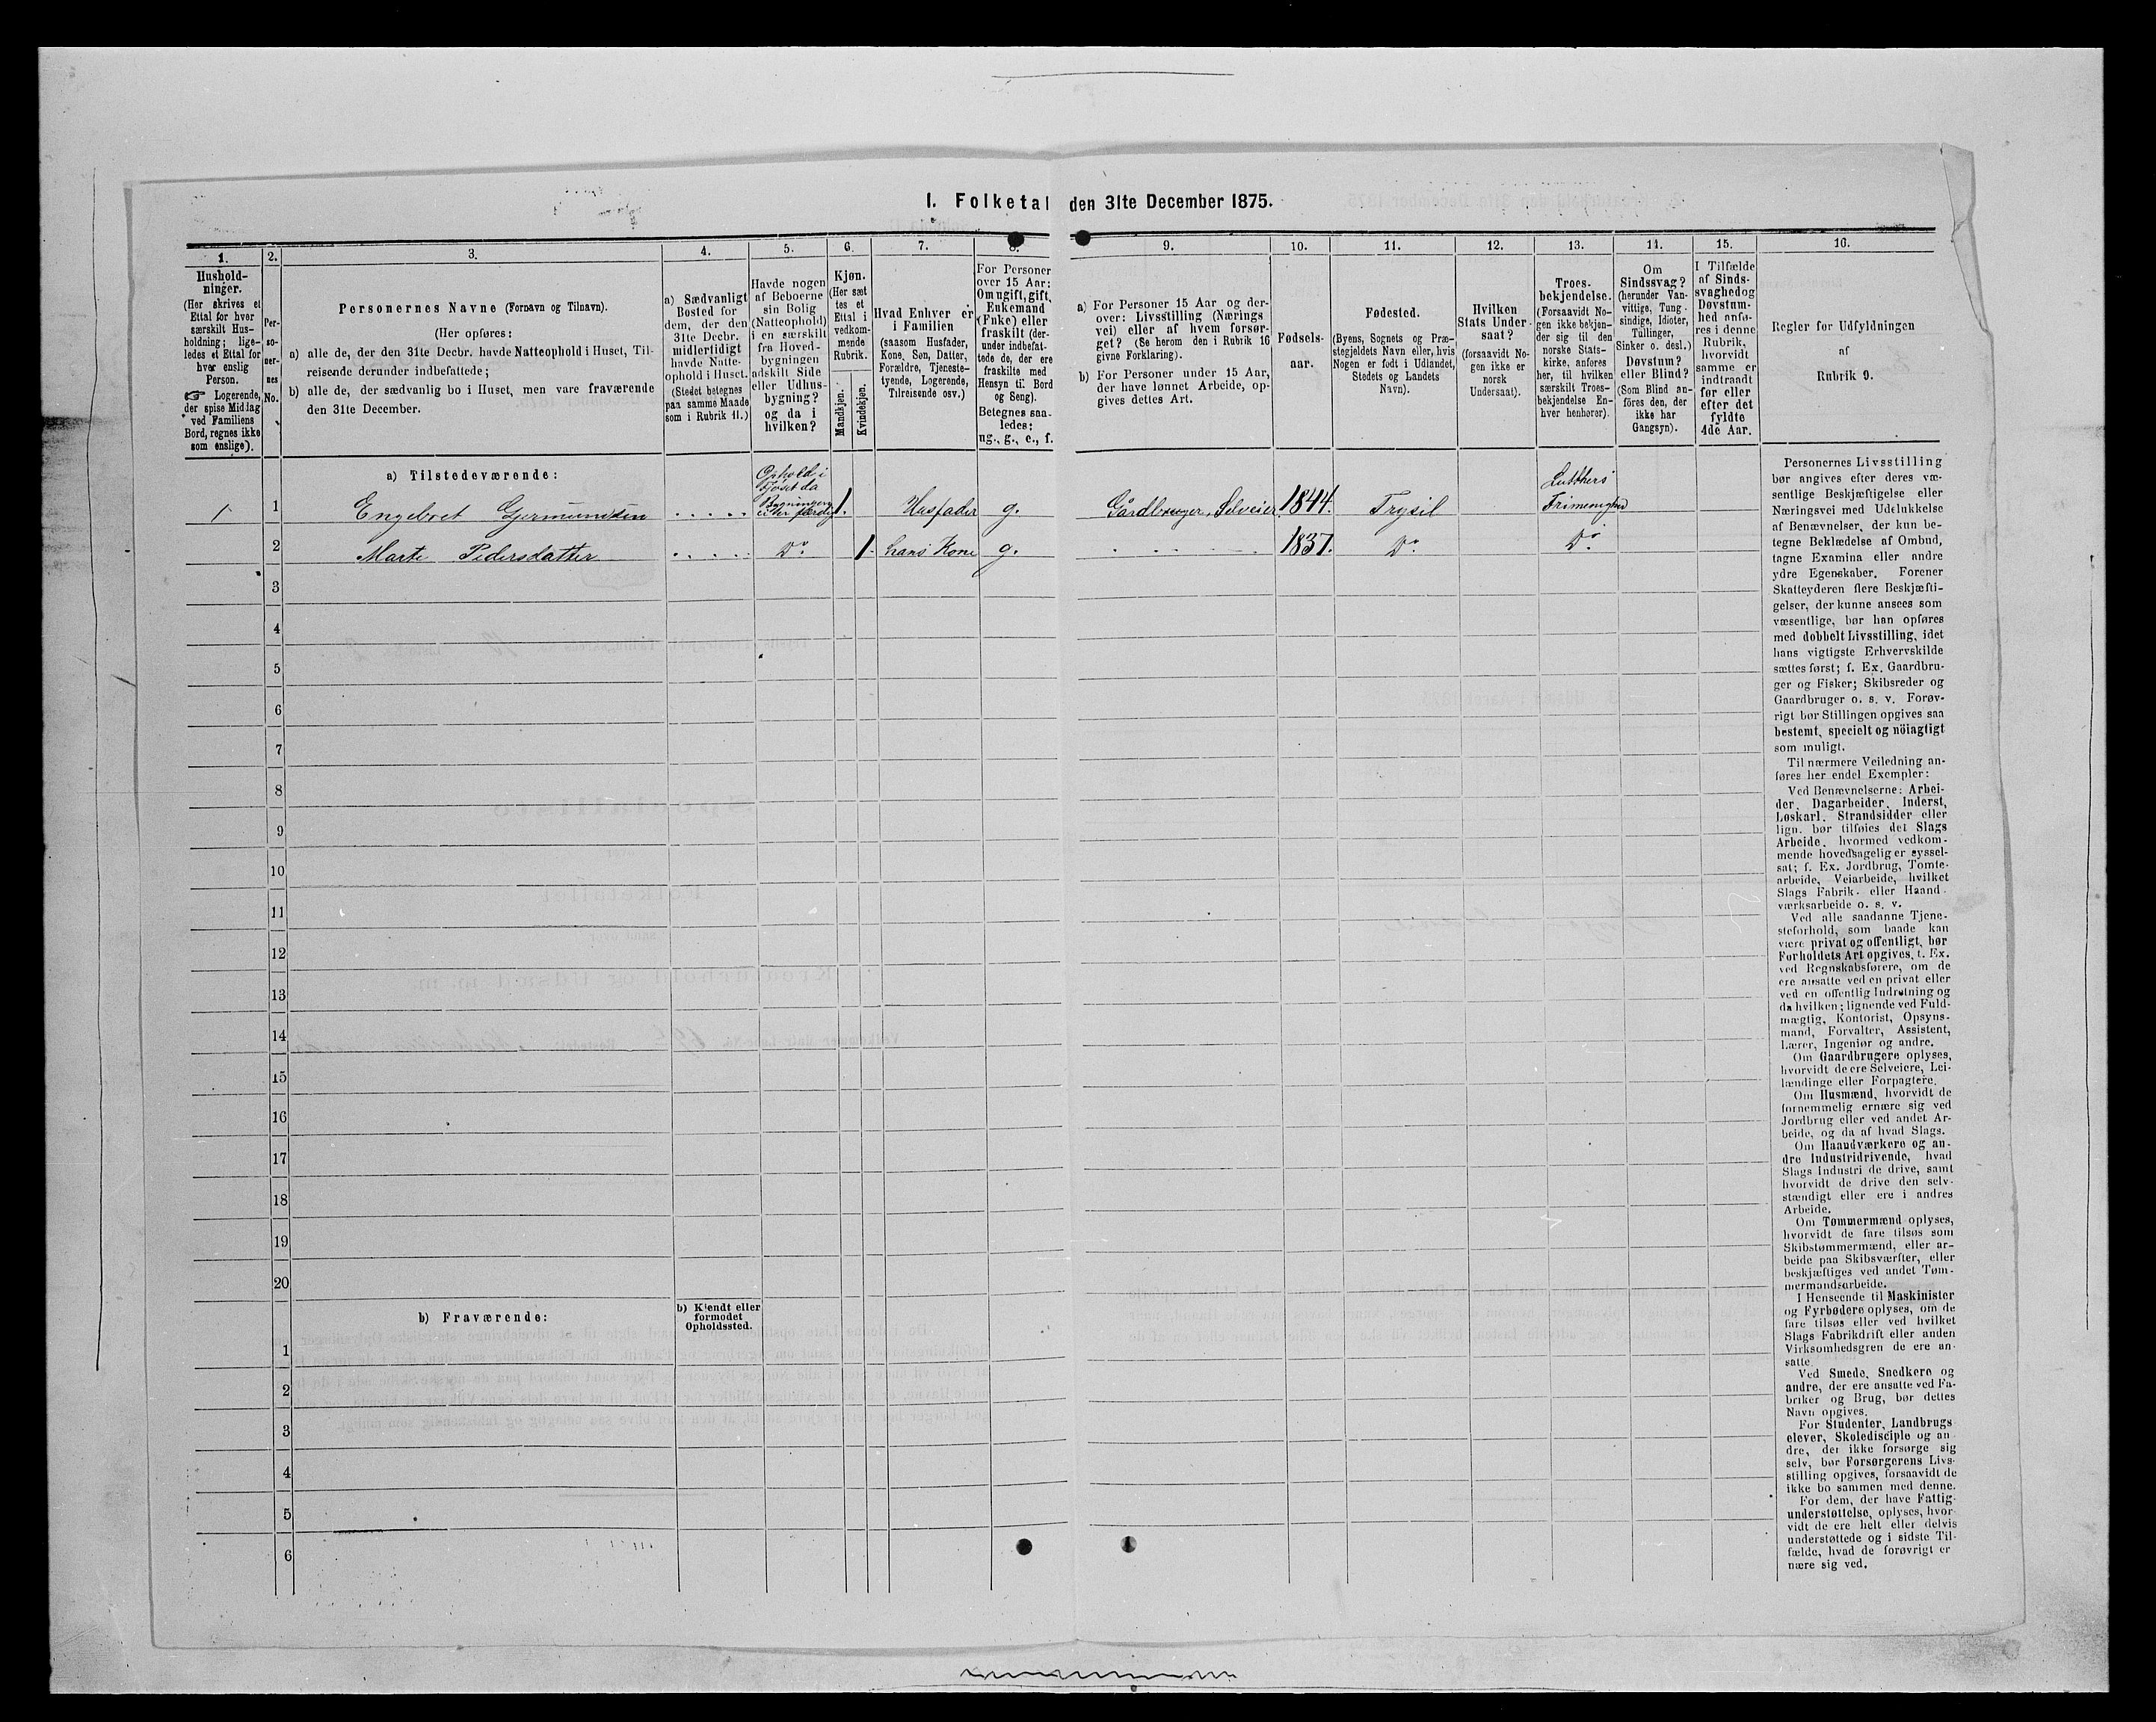 I. Folketal den 31te December 1875.
1.
Hushold-
ninger.
(Her skrives et
Ettal for hver
særskilt Hus-
holdning; lige-
ledes et Ettal for
hver enslig
Person.
☞ Logerende,
der spise Middag
ved Familiens
Bord, regnes ikke
som enslige).
2.
Per-
so-
ner-
nes
No.
3.
Personernes Navne (Fornavn og Tilnavn).
(Her opføres:
a) alle de, der den 31te Decbr. havde Natteophold i Huset, Til-
reisende derunder indbefattede;
b) alle de, der sædvanlig bo i Huset, men vare fraværende
den 31te December.
4.
a) Sædvanligt
Bosted for
dem, der den
31te Decbr.
midlertidigt
havde Natte-
ophold i Huset.
(Stedet betegnes
paa samme Maade
som i Rubrik 11.)
5.
Havde nogen
af Beboerne
sin Bolig
(Natteophold)
i en særskilt
fra Hoved-
bygningen
adskilt Side
eller Udhus-
bygning?
og da i
hvilken?
6.
Kjøn.
(Her sæt
tes et
Ettal i
vedkom-
mende
Rubrik.
Mandkjøn.
Kvindekjøn.
7.
Hvad Enhver er
i Familien
(saasom Husfader,
Kone, Søn, Datter,
Forældre, Tjeneste-
tyende, Logerende,
Tilreisende osv.)
8.
For Personer
over 15 Aar:
Om ugift, gift,
Enkemand
(Enke) eller
fraskilt (der-
under indbefat-
tede de, der ere
fraskilte med
Hensyn til Bord
og Seng).
Betegnes saa-
ledes:
ug., g., e., f.
9.
a) For Personer 15 Aar og der-
over: Livsstilling (Nærings
vei) eller af hvem forsør-
get? (Se herom den i Rubrik 16
givne Forklaring).
b) For Personer under 15 Aar,
der have lønnet Arbeide, op-
gives dettes Art.
10.
Fødsels-
aar.
11.
Fødested.
(Byens, Sognets og Præ-
stegjeldets Navn eller, hvis
Nogen er født i Udlandet,
Stedets og Landets
Navn).
12.
Hvilken
Stats Under-
saat?
(forsaavidt No-
gen ikke er
norsk
Undersaat).
13.
Troes-
bekjendelse.
(Forsaavidt No-
gen ikke bekjen-
der sig til den
norske Stats-
kirke, anføres
her, til hvilken
særskilt Troes-
bekjendelse En-
hver henhører).
14.
Om
Sindssvag?
(herunder Van-
vittige, Tung-
sindige, Idioter,
Tullinger,
Sinker o. desl.)
Døvstum?
eller Blind?
(Som Blind an-
føres den, der
ikke har
Gangsyn).
15.
I Tilfælde
af Sinds-
svaghed og
Døvstum-
hed anfø-
res i denne
Rubrik,
hvorvidt
samme er
indtraadt
før eller
efter det
fyldte
4de Aar.
16.
Regler for Udfyldningen
af
Rubrik 9.
a) Tilstedeværende:
1 1 Engebret Gjermundsen ..... Ophold i Føset da Bygningen er færdig 1. Husfader g. Gårdbruger, Selveier 1844. Trysil Luthers Frimenighed
2 Marte Pedersdatter ..... Do 1. hans Kone g. ..... 1837. Do Do
3
4
5
6
7
8
9
10
11
12
13
14
15
16
17
18
19
20
b) Fraværende:
b) Kjendt eller
formodet
Opholdssted.
1
2
3
4
5
6
Personernes Livsstilling
bør angives efter deres væ-
sentlige Beskjæftigelse eller
Næringsvei med Udelukkelse
af Benævnelser, der kun be-
tegne Beklædelse af Ombud,
tagne Examina eller andre
ydre Egenskaber. Forener
Skatteyderen flere Beskjæfti-
gelser, der kunne ansees som
væsentlige, bør han opføres
med dobbelt Livsstilling, idet
hans vigtigste Erhvervskilde
sættes først; f. Ex. Gaardbru-
ger og Fisker; Skibsreder og
Gaardbruger o. s. v. Forøv-
rigt bør Stillingen opgives saa
bestemt, specielt og nöiagtigt
som muligt.
Til nærmere Veiledning an-
føres her endel Exempler:
Ved Benævnelserne: Arbei-
der, Dagarbeider, Inderst,
Løskarl, Strandsidder eller
lign. bør tilføies det Slags
Arbeide, hvormed vedkom-
mende hovedsagelig er syssel-
sat; f. Ex. Jordbrug, Tomte-
arbeide, Veiarbeide, hvilket
Slags Fabrik- eller Haand-
værksarbeide o. s. v.
Ved alle saadanne Tjene-
steforhold, som baade kan
være privat og offentligt, bør
Forholdets Art opgives, f. Ex.
ved Regnskabsførere, om de
ere ansatte ved en privat eller
ved en offentlig Indretning og
da hvilken; lignende ved Fuld-
mægtig, Kontorist, Opsyns-
mand, Forvalter, Assistent,
Lærer, Ingeniør og andre.
Om Gaardbrugere oplyses,
hvorvidt de ere Selveiere, Lei-
lændinge eller Forpagtere.
Om Husmænd, hvorvidt de
fornemmelig ernære sig ved
Jordbrug eller ved andet Ar-
beide, og da af hvad Slags.
Om Haandværkere og an-
dre Industridrivende, hvad
Slags Industri de drive, samt
hvorvidt de drive den selv-
stændigt eller ere i andres
Arbeide.
Om Tømmermænd oplyses,
hvorvidt de fare tilsøs som
Skibstømmermænd, eller ar-
beide paa Skibsværfter, eller
beskjæftiges ved andet Tøm-
mermandsarbeide.
I Henseende til Maskinister
og Fyrbødere oplyses, om de
fare tilsøs eller ved hvilket
Slags Fabrikdrift eller anden
Virksomhedsgren de ere an-
satte
Ved Smede, Snedkere og
andre, der ere ansatte ved Fa-
briker og Brug, bør dettes
Navn opgives.
For Studenter, Landbrugs
elever, Skoledisciple og an
dre, der ikke forsørge sig
selv, bør Forsørgerens Livs-
stilling opgives, forsaavidt de
ikke bo sammen med denne.
For dem, der have Fattig-
understøttelse, oplyses, hvor-
vidt de ere helt eller delvis
understøttede og i sidste Til-
fælde, hvad de forøvrigt er
nære sig ved.